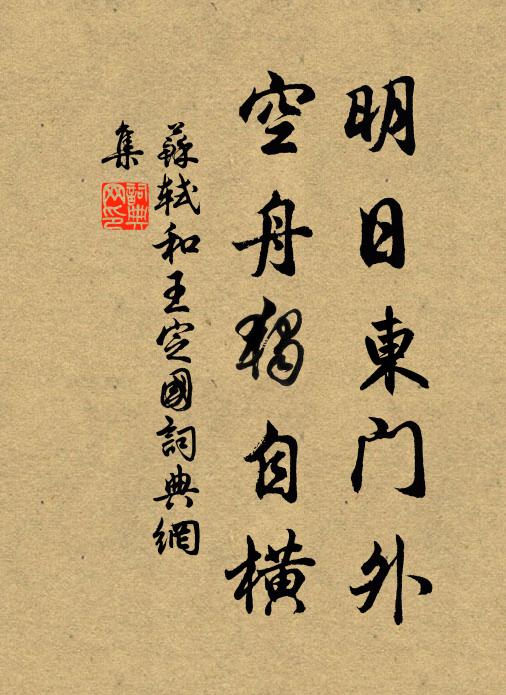 明日東門外
空舟獨自橫
蘇軾和王定國詞典網
集
詞典网印